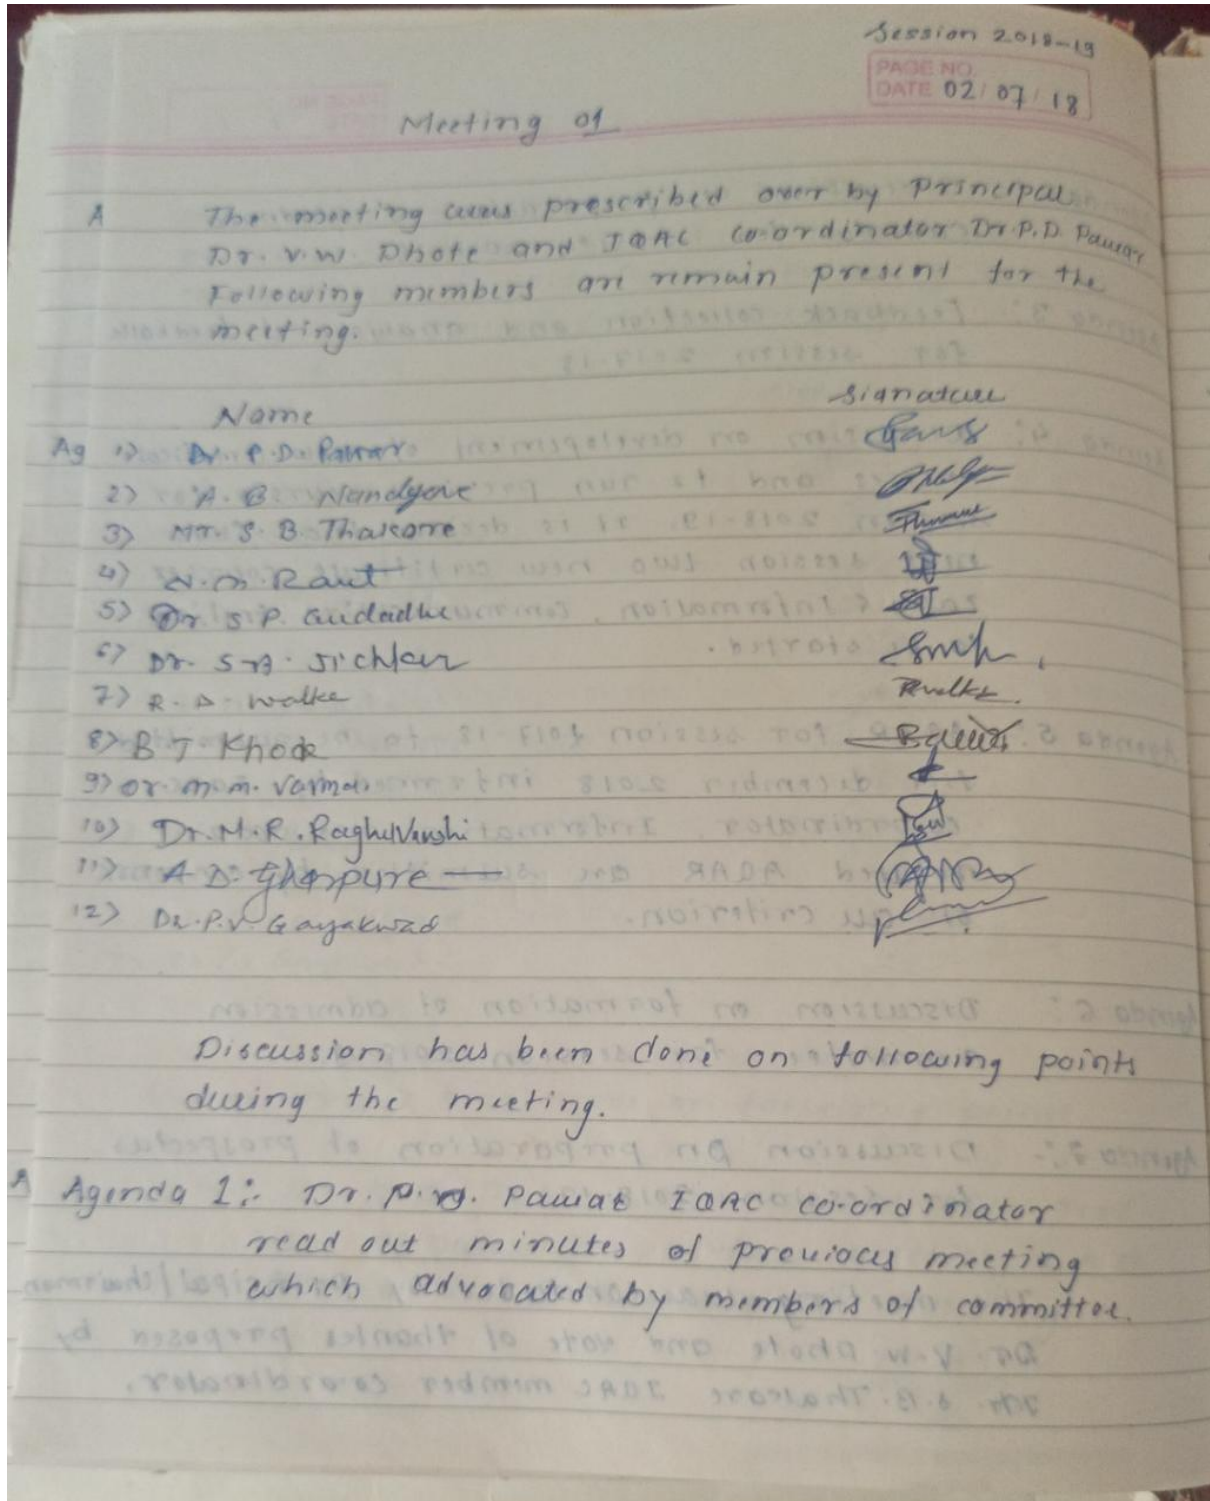 Session 2018-19
PAGE NO.
DATE 02/07/18
Meeting 01
A The meeting was prescribed over by principal
Dr. V.W. Dhote and IQAC co-ordinator Dr. P.D. Pawar
Following members are remain present for the
meeting.
Name Signature
Ag 1) Dr. P.D. Pawar
2) A. B.
3) Mr. S. B. Thakare
4) Raut
5) Dr. S. P. Gudadhe
6) Dr.
7) R. D. Walke
8) B T Khode
9) Dr. M. M. Varma
10) Dr. M. R. Raghuvanshi
11) A D. Gharpure
12) Dr. P. V. Gayakwad
Discussion has been done on following points
during the meeting.
A Agenda 1:- Dr. P. Pawar IQAC co-ordinator
read out minutes of previous meeting
which advocated by members of committee.